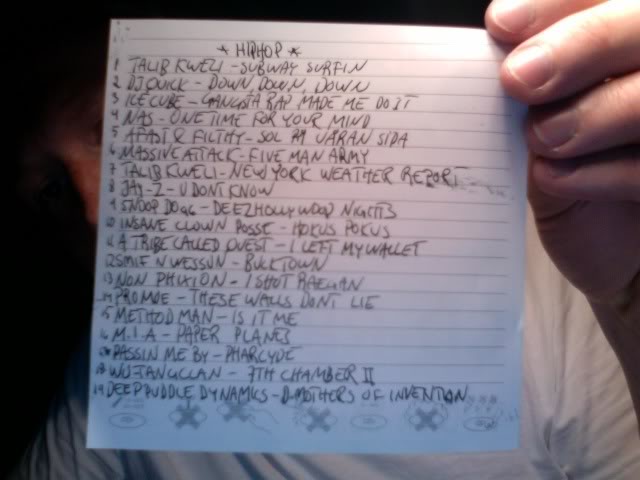 * HIPHOP *
1 TALIB KWELI - SUBWAY SURFIN
2 DJ QUICK - DOWN, DOWN, DOWN
3 ICE CUBE - GANGSTA RAP MADE ME DO IT
4 NAS - ONE TIME FOR YOUR MIND
5 AFASI & FILTHY - SOL PÅ VÅRAN SIDA
6 MASSIVE ATTACK - FIVE MAN ARMY
7 TALIB KWELI - NEW YORK WEATHER REPORT
8 JAY-Z - U DONT KNOW
9 SNOOP DOGG - DEEZ HOLLYWOOD NIGHTS
10 INSANE CLOWN POSSE - HOKUS POKUS
11 A TRIBE CALLED QUEST - I LEFT MY WALLET
12 SMIF N WESSUN - BUCKTOWN
13 NON PHIXION - I SHOT RAEGAN
14 PROMOE - THESE WALLS DONT LIE
15 METHOD MAN - IS IT ME
16 M.I.A - PAPER PLANES
PASSIN ME BY - PHARCYDE
18 WU-TANG CLAN - 7TH CHAMBER II
19 DEEP PUDDLE DYNAMICS - MOTHERS OF INVENTION